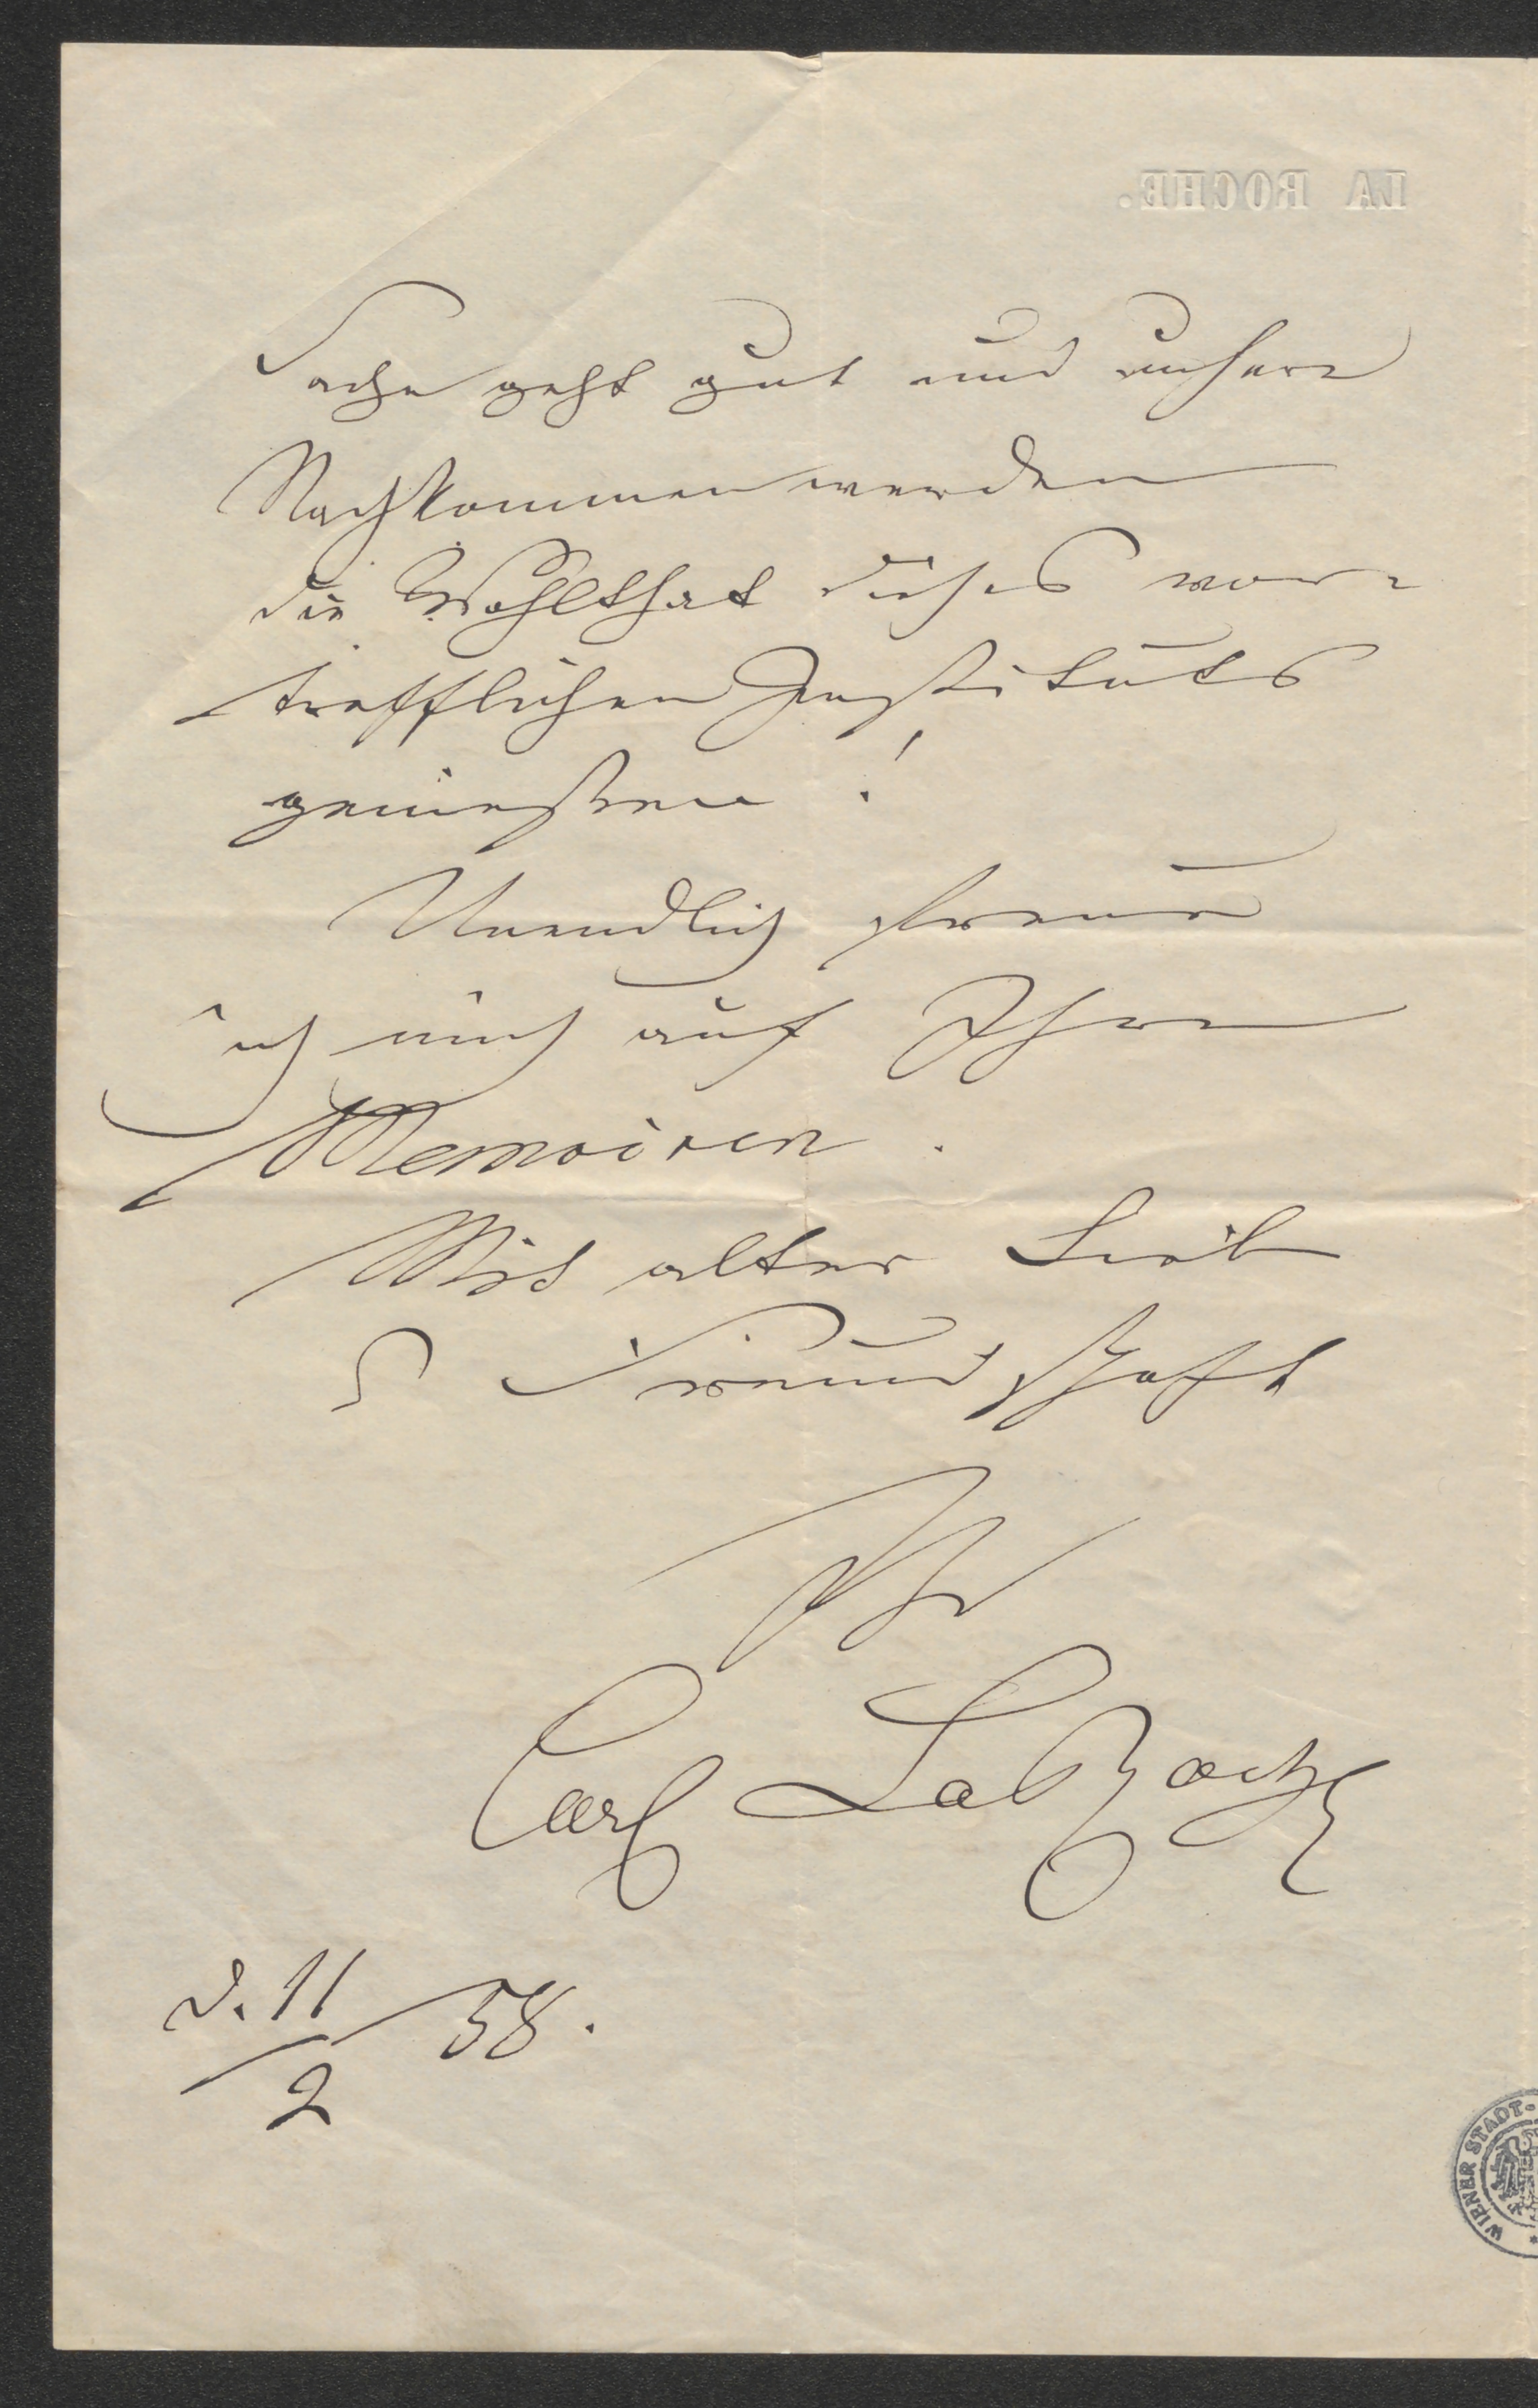 LA ROCHE.
Sache geht gut und unsere
Nachkommen werden
die Wohlthat dieses vor-
trefflichen Instituts
geniessen!
Unendlich freue
ich mich auf Ihre
Memoiren.
Mit alter Lieb
& Freundschaft
Ihr
Carl La Roche
d. 11/2 58.
WIENER STADT-